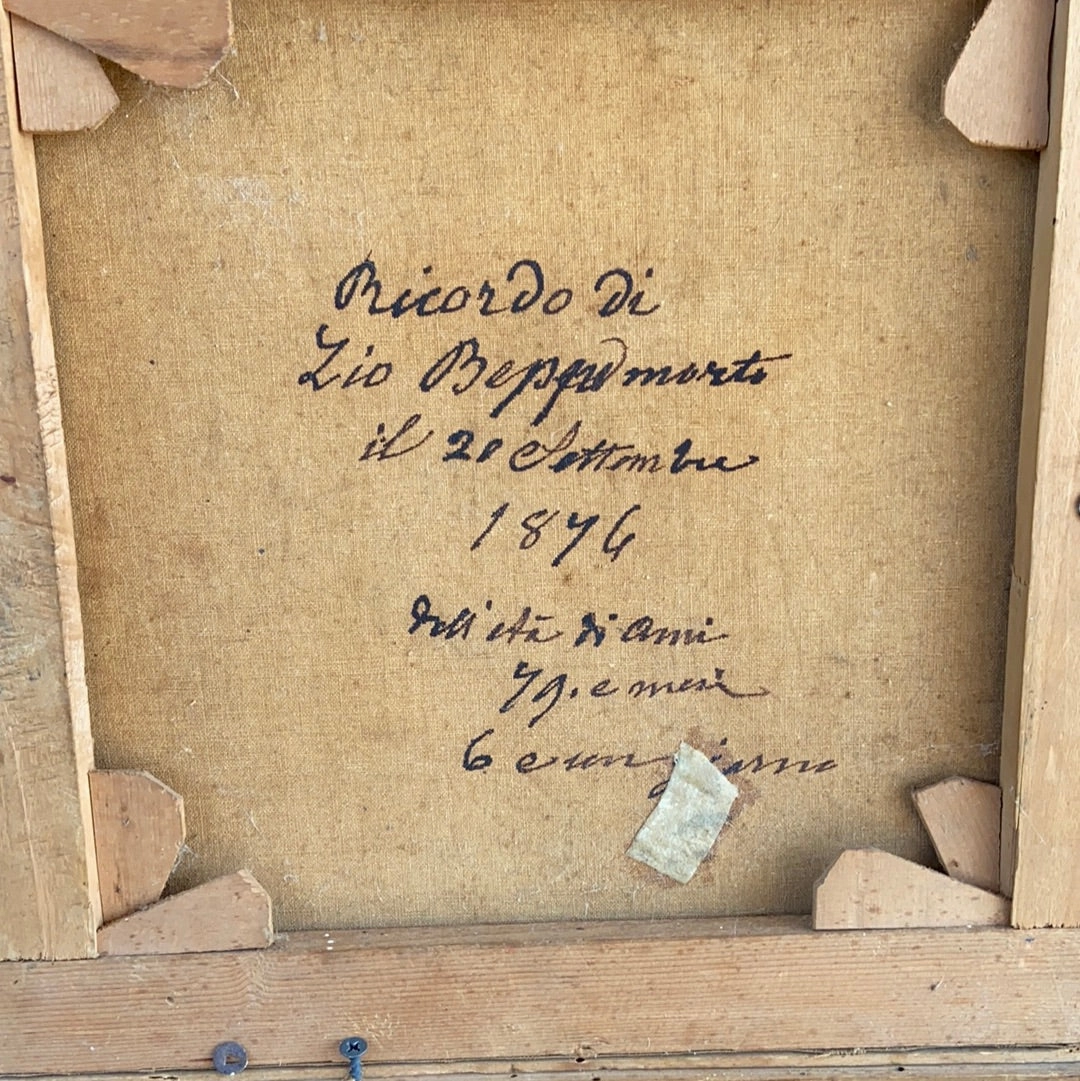 Ricordo di
Zio Beppe morto
il 20 Settembre
1876
dell'età di anni
79. e mesi
6 e un giorno